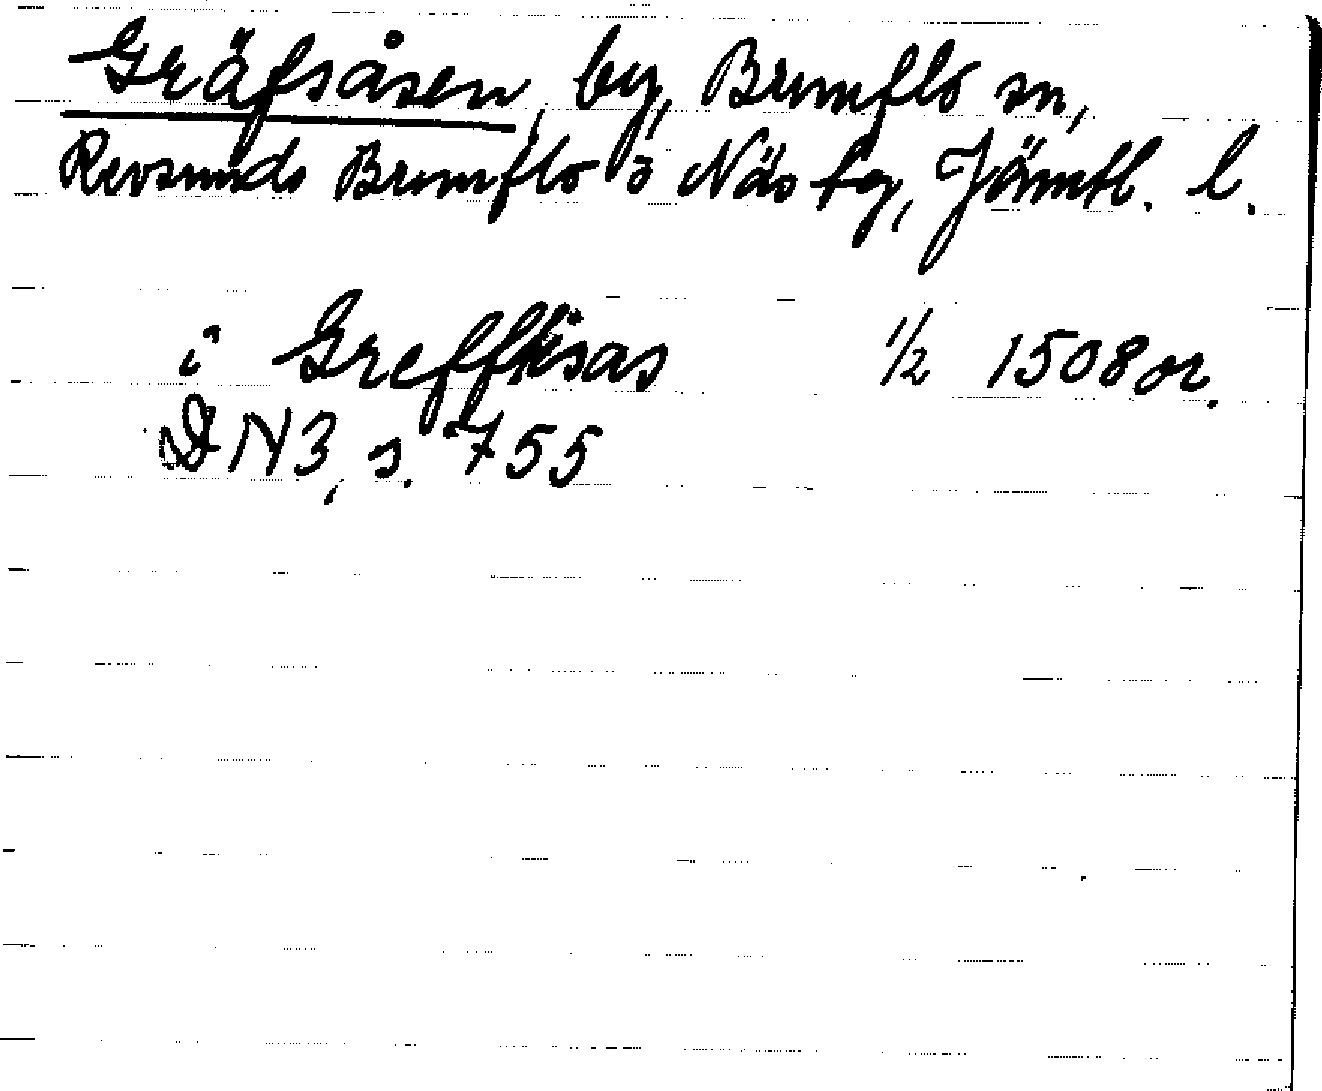 Gräfsåsen, by, Brunflo sn,
Revsunds Brunflo o Näs tg, Jämtl. l.
i Greffsisas 1/2 1508 or.
DN3, s. 755